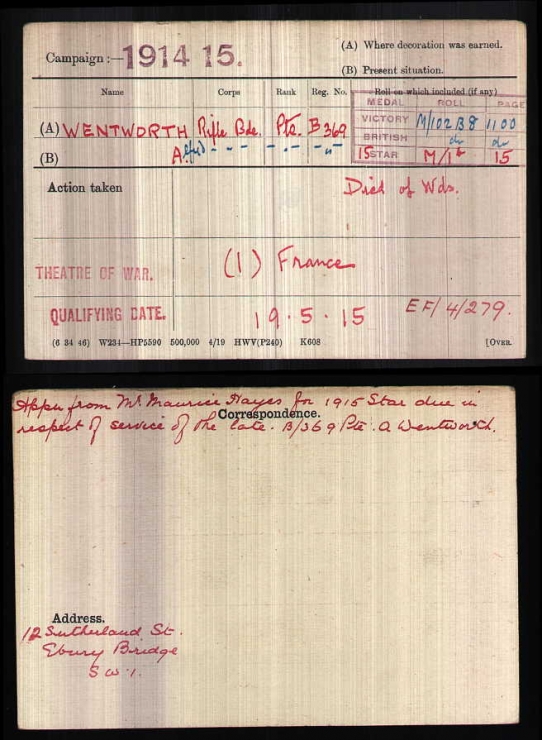 Campaign :— 1914 15.
(A) Where decoration was earned.
(B) Present situation.
Name Corps Rank Reg. No. Roll on which included (if any)
MEDAL ROLL PAGE
(A) WENTWORTH Rifle Bde. Pte. B 369
VICTORY M/102 B8 1100
BRITISH do do
(B) Alfred - - - - " - - " -
15 STAR M/1 15
Action taken
Died of Wds.
THEATRE OF WAR. (1) France
QUALIFYING DATE. 19.5.15 EF/4/279.
(6 34 46) W234—HP5590 500,000 4/19 HWV(P240) K608 [OVER.
Appn from Mr. Maurice Hayes for 1915 Star due in
Correspondence.
respect of service of the late. B/369 Pte. A Wentworth.
Address.
12 Sutherland St.
Ebury Bridge
S W 1.